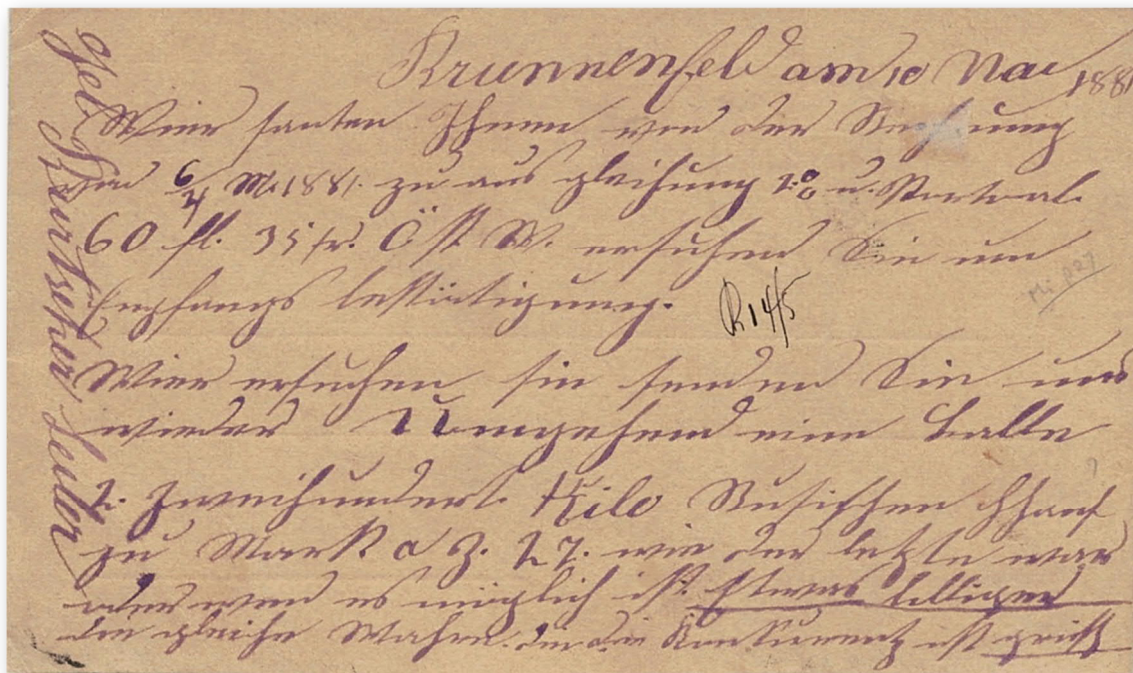 Brunnenfeld am 10 Mai 1881
Wier santen Ihnen von der Rechnung
von 6/4 M. 1881. zu aus gleichung 2% u.
60 fl. 35 kr. Öst. W. ersuchen Sie um
Empfangs bestätigung.
R 14/5
Wier ersuchen sie senden Sie uns
wieder Umgehend eine Balle
2. Zweihundert. Kilo Rusischen Hhanf
zu Mark a 3. 27. wie der letzte war
oder wen es möglich ist. Etwas billiger
die gleiche Wahre. den die Konkurentz ist groß
Geb. Seiler
Mi P27